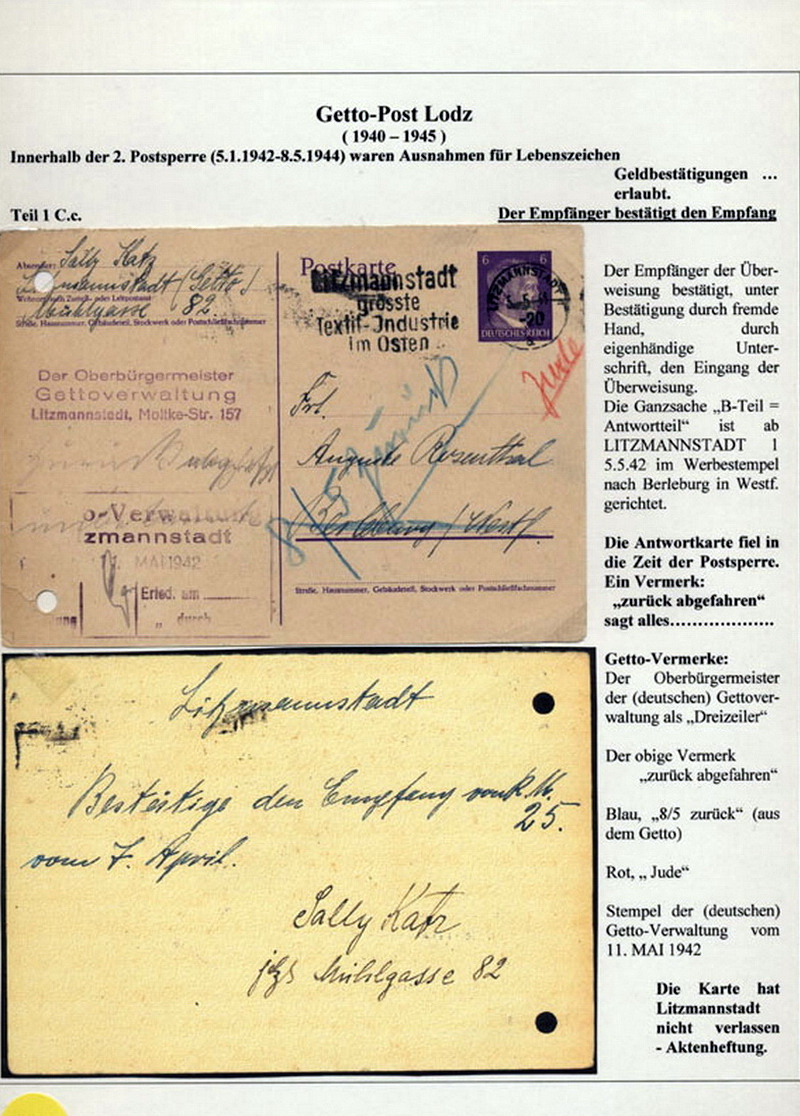 Getto-Post Lodz
( 1940 – 1945 )
Innerhalb der 2. Postsperre (5.1.1942-8.5.1944) waren Ausnahmen für Lebenszeichen
Geldbestätigungen …
erlaubt.
Teil 1 C.c.
Der Empfänger bestätigt den Empfang
Absender: Sally Katz
Litzmannstadt (Getto)
Wohnort, auch Zustell- oder Leitpostamt
Mühlgasse 82.
Straße, Hausnummer, Gebäudeteil, Stockwerk oder Postschließfachnummer
Der Oberbürgermeister
Gettoverwaltung
Litzmannstadt, Moltke-Str. 157
zurück abgefahr
o-Verwaltung
zmannstadt
MAI 1942
Erled. am
„ durch
ung
Postkarte
Litzmannstadt
grösste
Textil-Industrie
im Osten
6 6
DEUTSCHES REICH
LITZMANNSTADT
-20
Jude
8/5 zurück
Frl.
Auguste Rosenthal
Berleburg / Westf.
Straße, Hausnummer, Gebäudeteil, Stockwerk oder Postschließfachnummer
Litzmannstadt
Bestätige den Empfang von R.M.
25.
vom 7. April.
Sally Katz
Mühlgasse 82
Der Empfänger der Über-
weisung bestätigt, unter
Bestätigung durch fremde
Hand, durch
eigenhändige Unter-
schrift, den Eingang der
Überweisung.
Die Ganzsache „B-Teil =
Antwortteil“ ist ab
LITZMANNSTADT 1
5.5.42 im Werbestempel
nach Berleburg in Westf.
gerichtet.
Die Antwortkarte fiel in
die Zeit der Postsperre.
Ein Vermerk:
„zurück abgefahren“
sagt alles...................
Getto-Vermerke:
Der Oberbürgermeister
der (deutschen) Gettover-
waltung als „Dreizeiler“
Der obige Vermerk
„zurück abgefahren“
Blau, „8/5 zurück“ (aus
dem Getto)
Rot, „ Jude“
Stempel der (deutschen)
Getto-Verwaltung vom
11. MAI 1942
Die Karte hat
Litzmannstadt
nicht verlassen
- Aktenheftung.